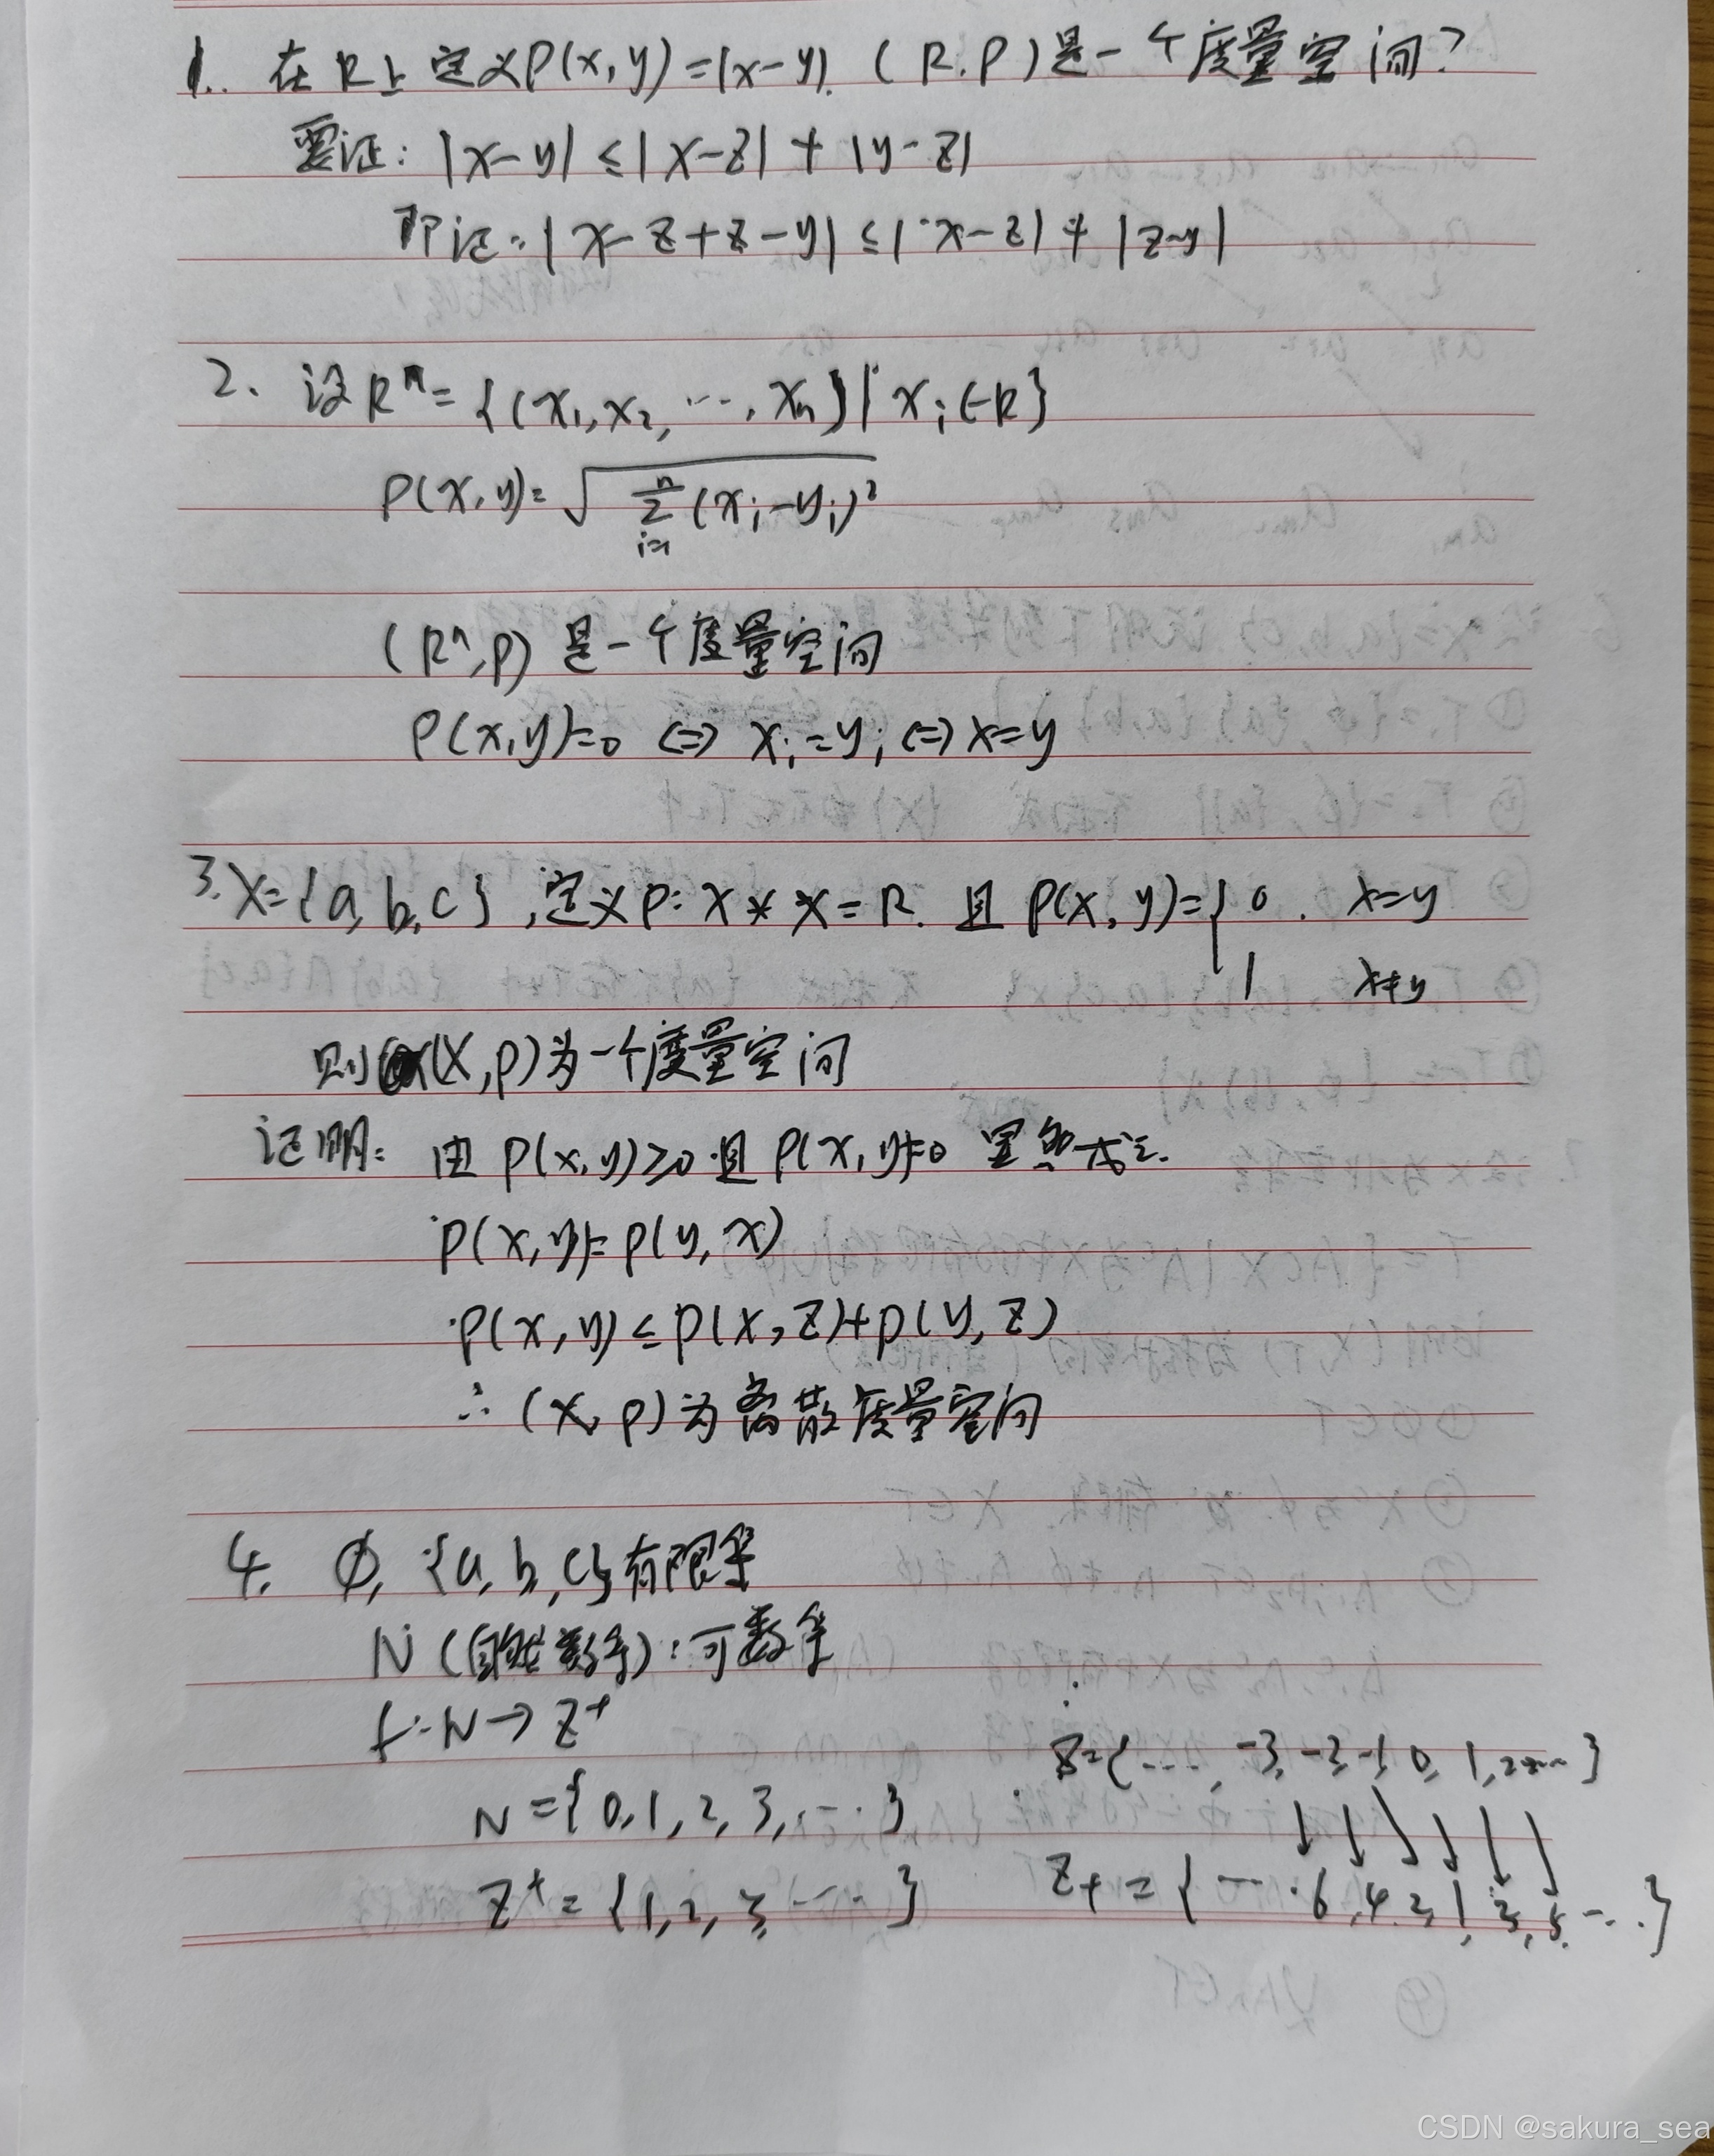 1. 在R上定义P(x,y)=|x-y|. (R.P)是一个度量空间?
要证: |x-y| ≤ |x-z| + |y-z|
即证: |x-z+z-y| ≤ |x-z| + |z-y|
2. 设Rⁿ={(x₁,x₂,…,xₙ)|xᵢ∈R}
P(x,y)=√∑ⁿᵢ₌₁(xᵢ-yᵢ)²
(Rⁿ,P) 是一个度量空间
P(x,y)=0 ⇔ xᵢ=yᵢ ⇔ x=y
3. X={a,b,c},定义P: X*X=R. 且 P(x,y)={0. x=y
1 x≠y
则(X,P)为一个度量空间
证明: 由P(x,y)≥0且P(x,y)=0 显然成立.
P(x,y)=P(y,x)
P(x,y)≤P(x,z)+P(y,z)
∴(X,P)为离散度量空间
4. Ø, {a,b,c}有限集
N(自然数集):可数集
f:N→Z⁺
Z={…,-3,-2,-1,0,1,2…}
N={0,1,2,3,…}
Z⁺={1,2,3,…}
Z₊={…6,4,2,1,3,5,…}
CSDN @sakura_sea